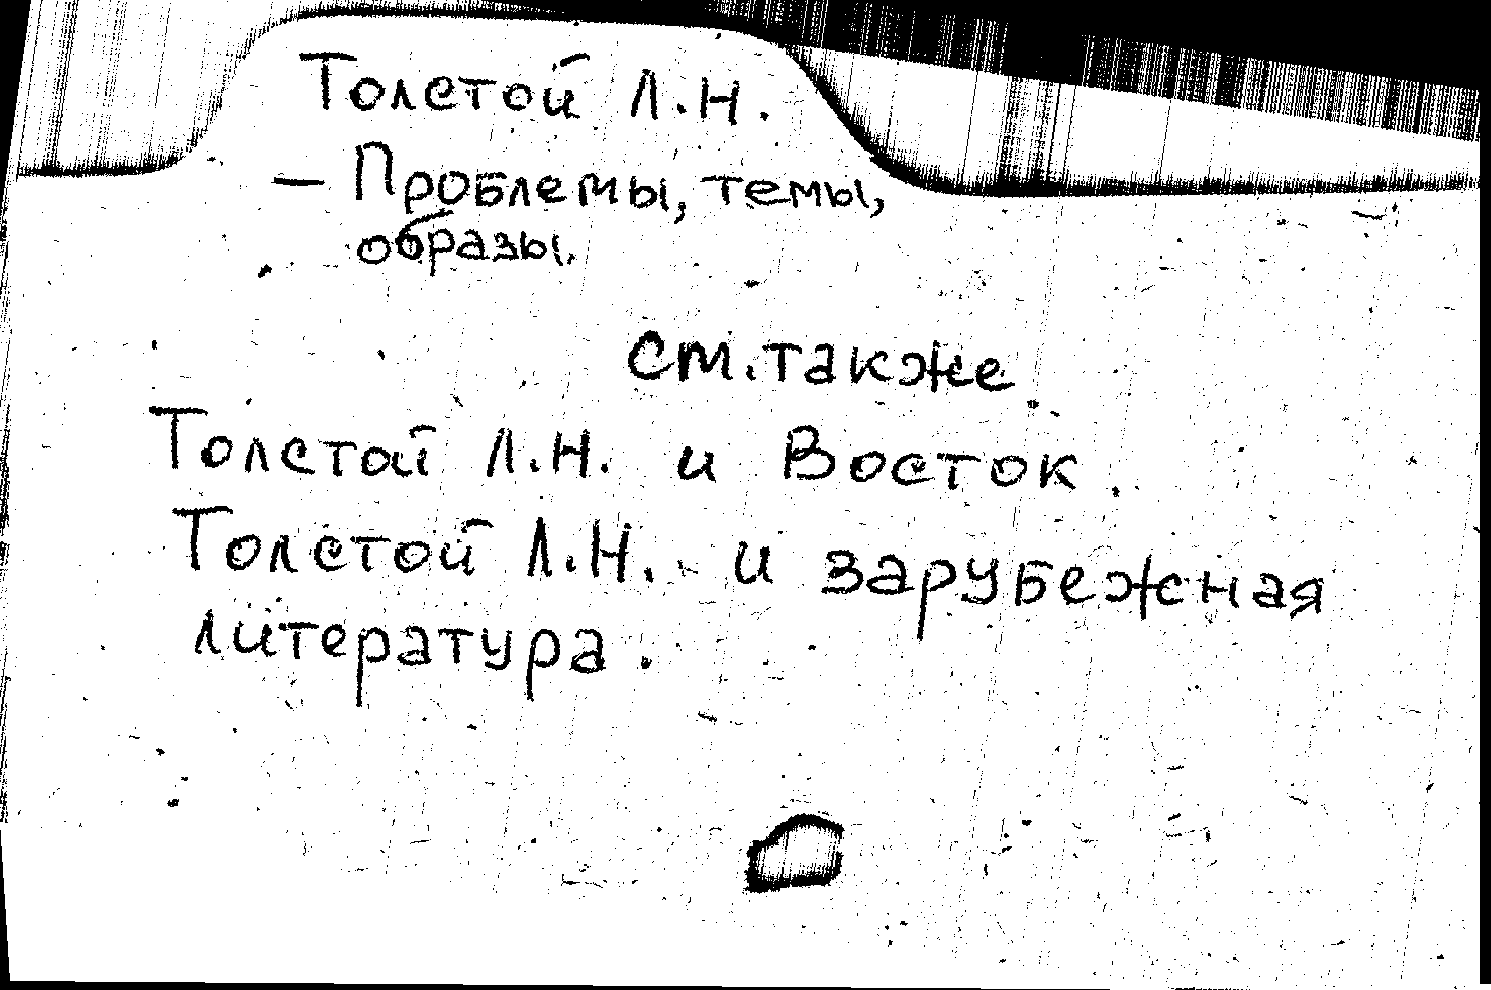 Толстой Л.Н.
— Проблемы, темы,
образы.
см. также
Толстой Л.Н. и Восток.
Толстой Л.Н. и зарубежная
литература.